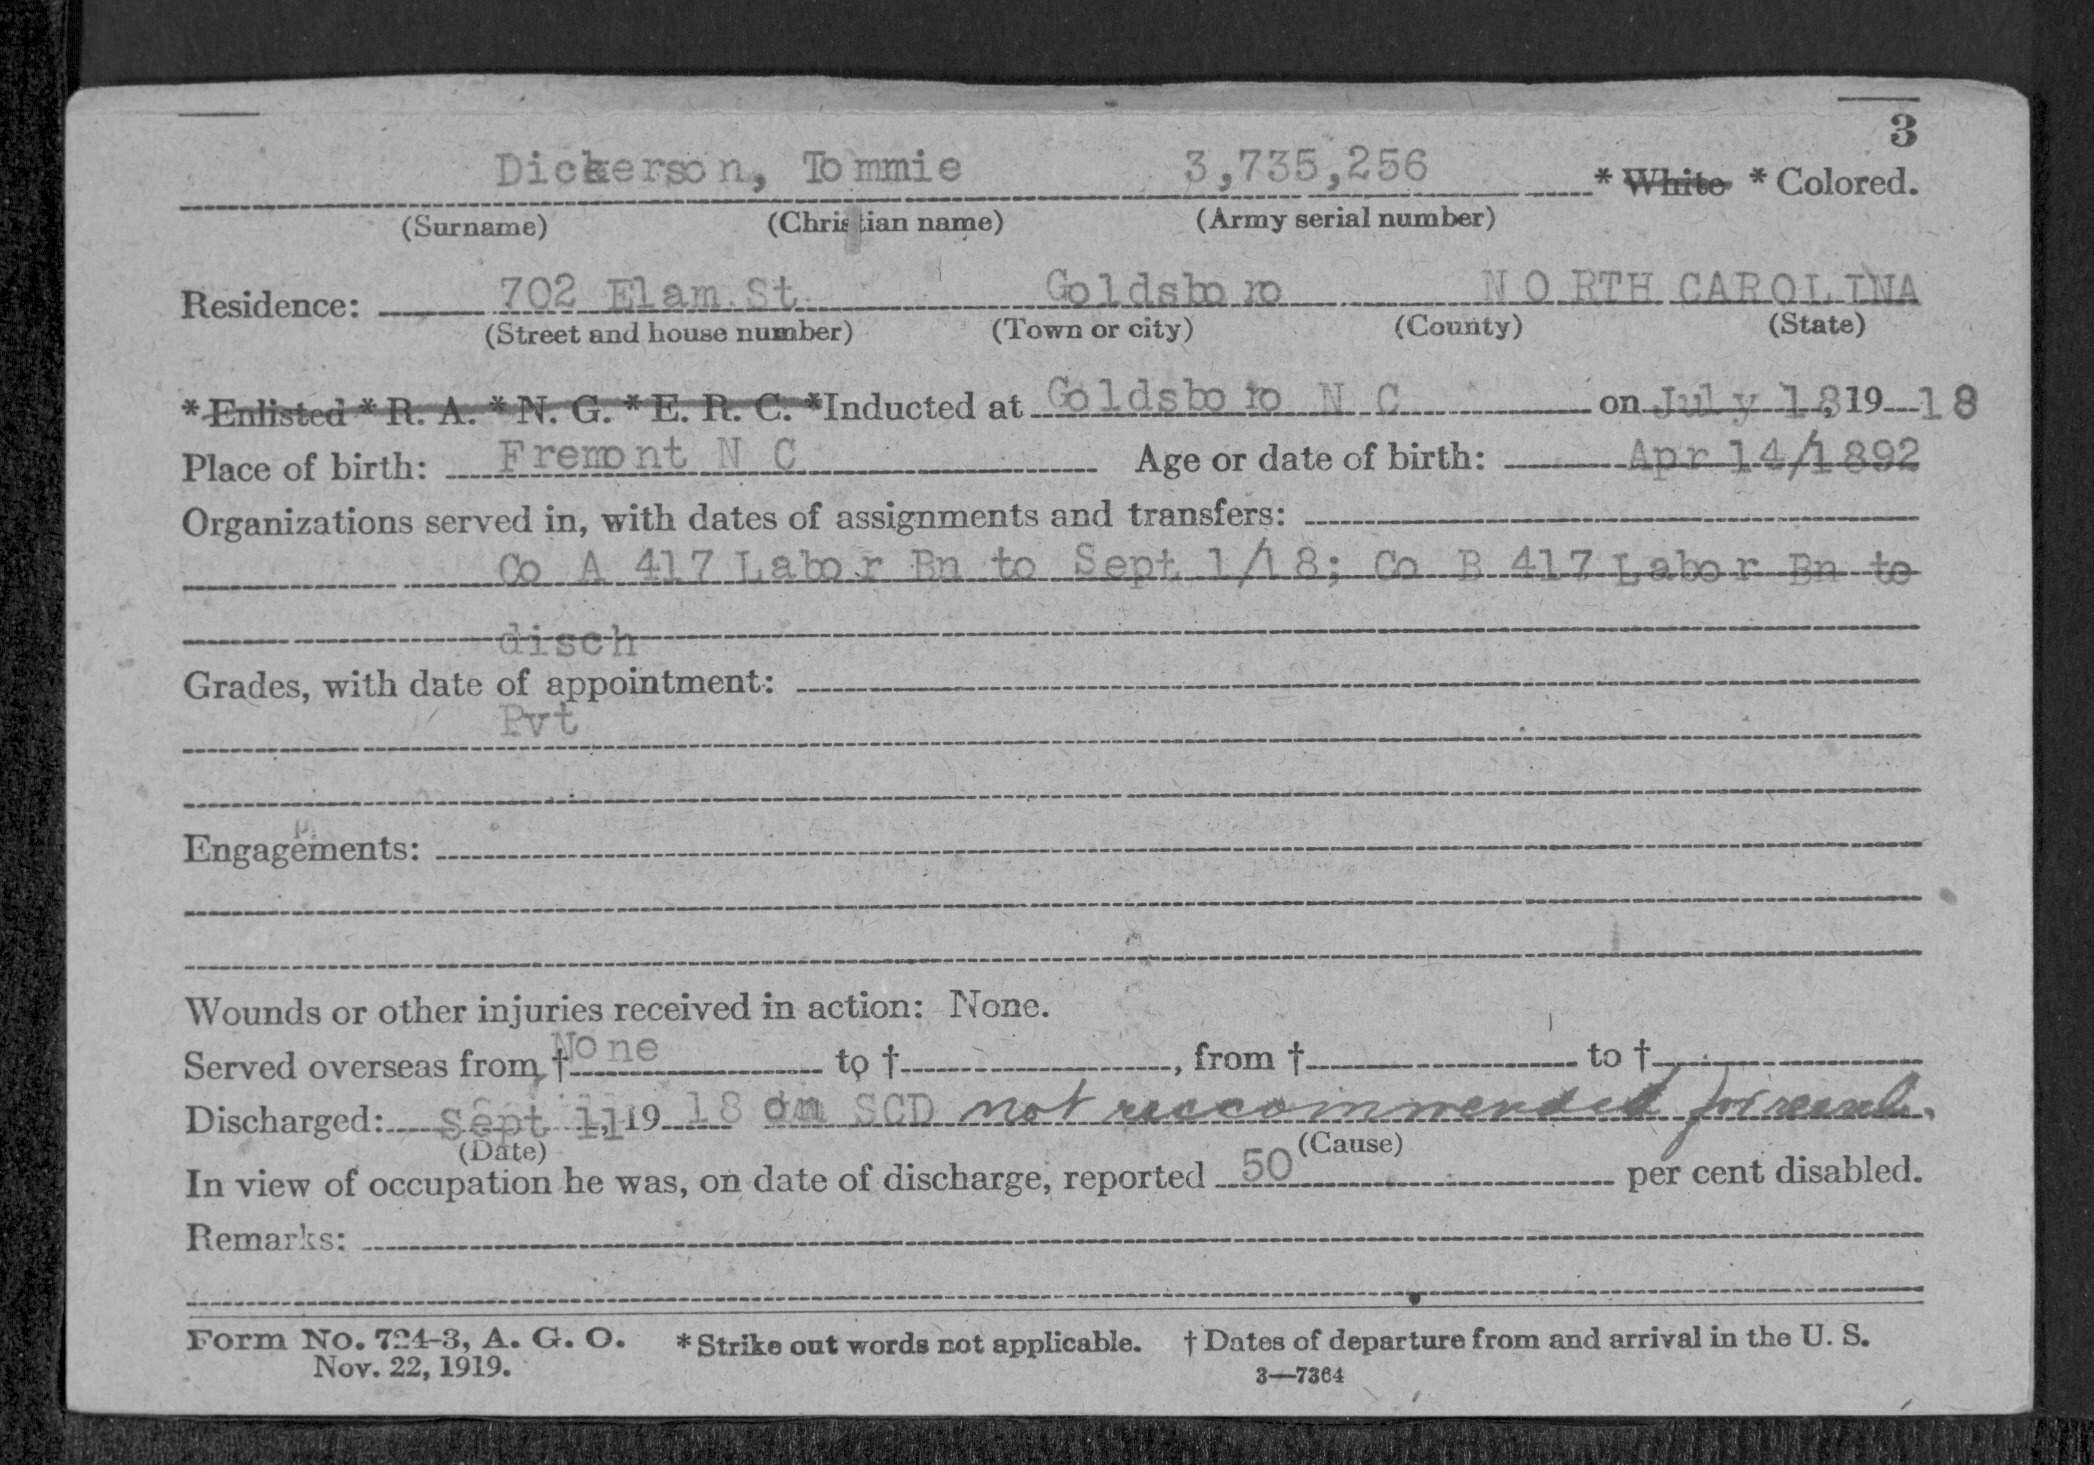 3
Dickerson, Tommie 3,735,256 * White * Colored.
(Surname) (Christian name) (Army serial number)
Residence: 702 Elam St Goldsboro NORTH CAROLINA
(Street and house number) (Town or city) (County) (State)
* Enlisted * R. A. * N. G. * E. R. C. * Inducted at Goldsboro N C on July 18, 19 18
Place of birth: Fremont N C Age or date of birth: Apr 14/1892
Organizations served in, with dates of assignments and transfers:
Co A 417 Labor Bn to Sept 1/18; Co B 417 Labor Bn to
disch
Grades, with date of appointment:
Pvt
Engagements:
Wounds or other injuries received in action: None.
Served overseas from † None to †, from † to †
Discharged: Sept 11, 19 18 on SCD not reccommended for
(Date) (Cause)
In view of occupation he was, on date of discharge, reported 50 per cent disabled.
Remarks:
Form No. 724-3, A. G. O. * Strike out words not applicable. † Dates of departure from and arrival in the U. S.
Nov. 22, 1919. 3—7364